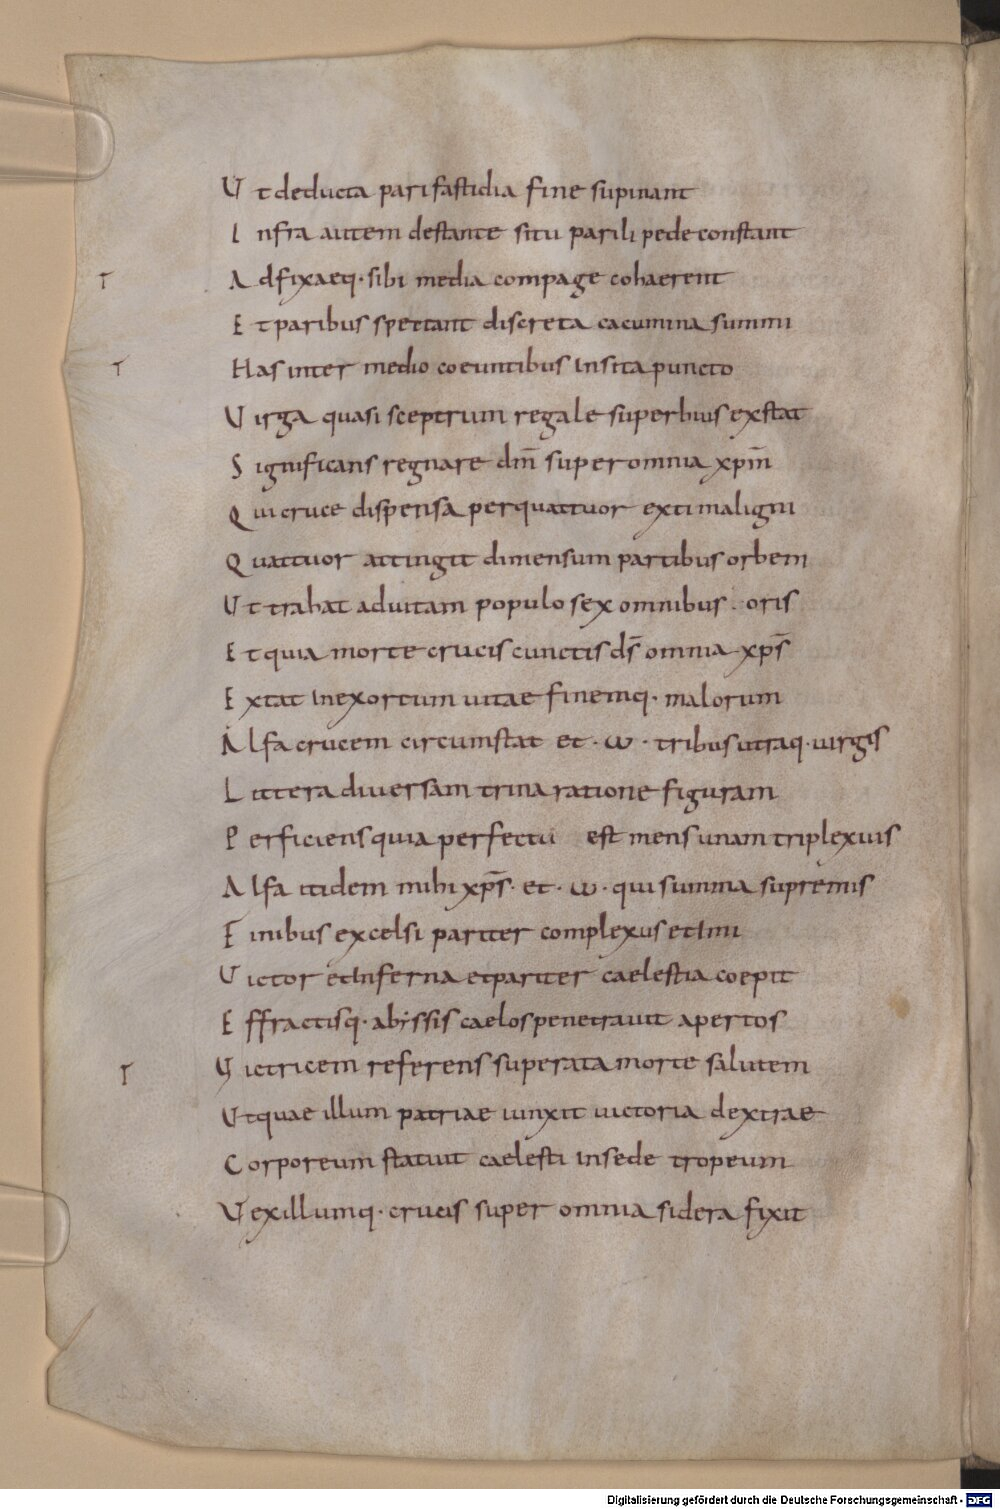 Ut deducta pari fastidia fine supinant
Infra autem destante situ parili pede constant
Γ Adfixaeq· sibi media compage cohaerent
Et paribus spectant discreta cacumina summi
Γ Has inter medio coeuntibus insita puncto
Virga quasi sceptrum regale superbius exstat
Significans regnare dnm̄ super omnia xpm̄
Qui cruce dispensa per quattuor extima ligni
Quattuor attingit dimensum partibus orbem
Ut trahat ad uitam populos ex omnibus oris
Et quia morte crucis cunctis ds̄ omnia xps̄
Extat in exortum uitae finemq· malorum
Alfa crucem circumstat et · ω · tribus utraq· uirgis
Littera diuersam trina ratione figuram
Perficiens quia perfectū est mens una in triplex uis
Alfa itidem mihi xps̄· et · ω · qui summa supremis
Finibus excelsi pariter complexus et imi
Victor et inferna et pariter caelestia coepit
Effractisq· abẏssis caelos penetrauit apertos
Γ Victricem referens superata morte salutem
Utquae illum patriae iunxit uictoria dextrae
Corporeum statuit caelesti in sede tropeum
Vexillumq· crucis super omnia sidera fixit
Digitalisierung gefördert durch die Deutsche Forschungsgemeinschaft - DFG